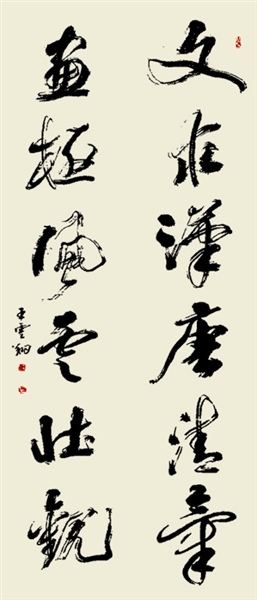 文作漢唐清氣
畫風雲壯觀
王雲翔